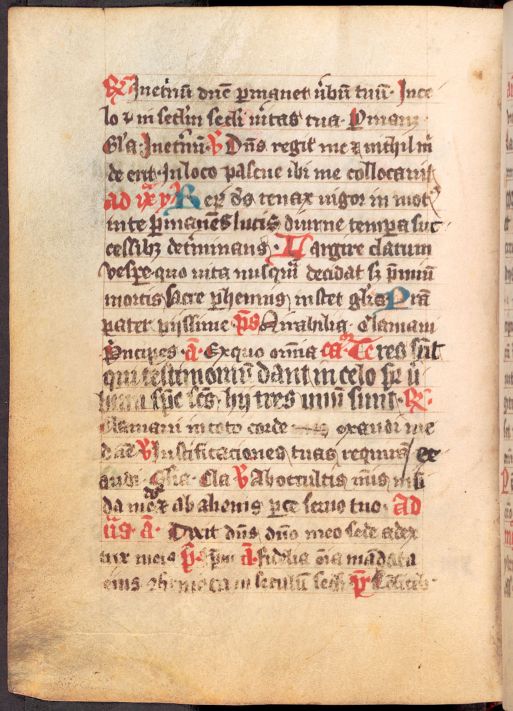 R Inet̄nū dnē p̄manet v̄bū tuū· Ince
lo ⁊ in secl̄m secl̄i v̄itas tua· P̄man
Gl̄a· Inet̄nū· V Dn̄s regit me ⁊ nichil m̄
de erit· In loco pascue ibi me collocavit
ad ix y Rer᷑ ds̄ tenax vigor in mot
in te p̄manēs lucis diurne tempa suc
cessibꝫ det̄minans· Largire clarum
vesꝑe quo vita nusqū decidat sꝫ p̄miū
mortis sacre ꝑhennis instet gl̄ia P̄ra
pater piissime ps̄ Mirabilia· Clamavi
P̄ncipes· a Ex quo omnia ca Tres sūt
qui testimoniū dant in celo pr̄ v̄
bum spc̄ sc̄s· hii tres unū sunt· R
Clamavi in toto corde exaudi me
dn̄e V Iustificationes tuas requirā ex
audi· Gl̄ia· Cla V Ab occultis m̄is mū
da me ⁊ ab alienis ꝑce servo tuo· Ad
vs̄ a· Dixit dn̄s dn̄o meo sede a dex
tris meis ps̄ ip̄m a Fidelia oīa mādata
eius 9firmata in seculū secl̄i ps̄ Cōfiteb·